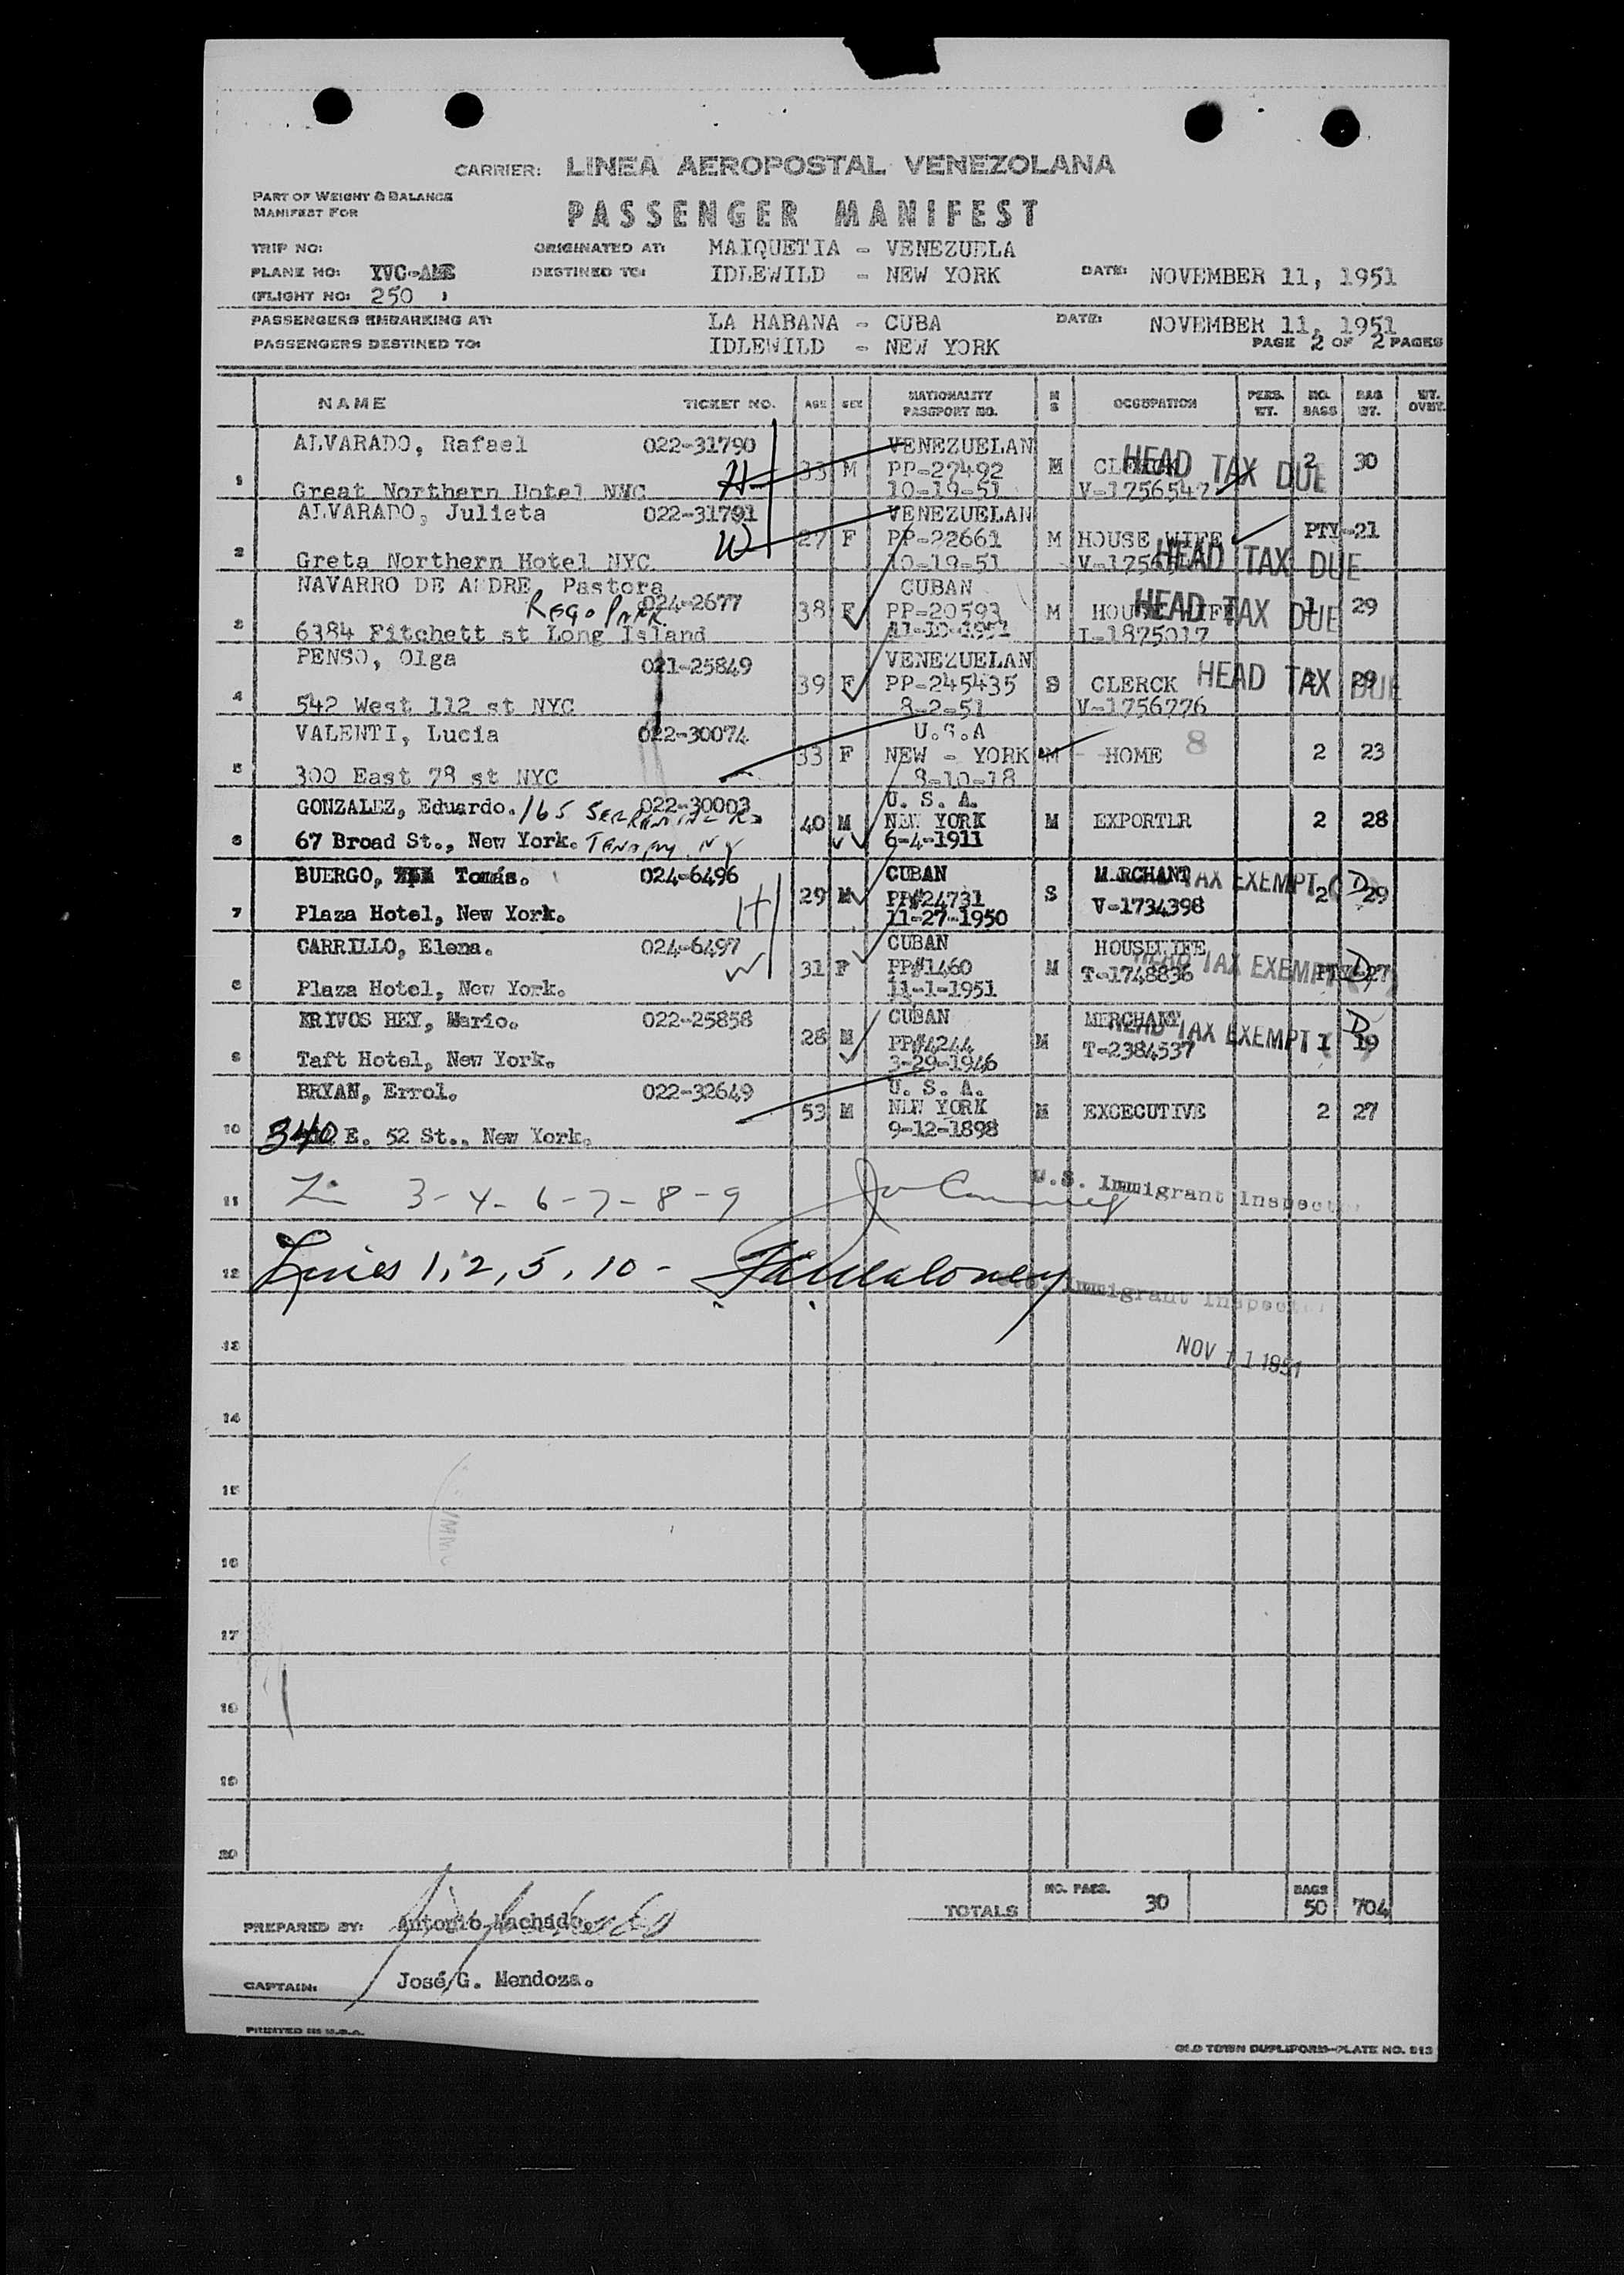 CARRIER: LINEA AEROPOSTAL VENEZOLANA
PART OF WEIGHT & BALANCE
MANIFEST FOR
PASSENGER MANIFEST
TRIP NO:
ORIGINATED AT: MAIQUETIA - VENEZUELA
PLANE NO:
DESTINED TO: IDLEWILD - NEW YORK
DATE: NOVEMBER 11, 1951
(FLIGHT NO: 250 )
PASSENGERS EMBARKING AT: LA HABANA - CUBA
DATE: NOVEMBER 11, 1951
PASSENGERS DESTINED TO: IDLEWILD - NEW YORK
PAGE 2 OF 2 PAGES
NAME TICKET NO. AGE SEX NATIONALITY PASSPORT NO. M S OCCUPATION PERS. WT. NO. BAGS BAG WT. WT. OVWT.
ALVARADO, Rafael 022-31790 VENEZUELAN
1 H 33 M PP-27492 M CLERCK HEAD TAX DUE 2 30
Great Northern Hotel NYC 10-19-51 V-1756547
ALVARADO, Julieta 022-31791 VENEZUELAN
2 W 27 F PP-22661 M HOUSE WIFE PTY-21
Greta Northern Hotel NYC 10-19-51 HEAD TAX DUE
NAVARRO DE ANDRE Pastora CUBAN
3 Rego Park 024-2677 38 F PP-20593 M HOUSE WIFE HEAD TAX DUE 1 29
6384 Fitchett st Long Island 11-10-1951 I-1875017
PENSO, Olga 021-25849 VENEZUELAN
4 39 F PP-245435 S CLERCK HEAD TAX DUE 29
542 West 112 st NYC 8-2-51 V-1756776
VALENTI, Lucia 022-30074 U.S.A
5 33 F NEW - YORK M HOME 8 2 23
300 East 78 st NYC 8-10-18
GONZALEZ, Eduardo. 165 022-30003 U. S. A.
6 40 M NEW YORK M EXPORTER 2 28
67 Broad St., New York. Tenafly N 6-4-1911
BUERGO, Tomás. 024-6496 CUBAN MERCHANT
7 H 29 M PP#24731 S TAX EXEMPT 2 D 29
Plaza Hotel, New York. 11-27-1950 V-1734398
CARRILLO, Elena. 024-6497 CUBAN HOUSEWIFE
8 W 31 F PP#1460 M T-1748836 HEAD TAX EXEMPT D PTY-27
Plaza Hotel, New York. 11-1-1951
KRIVOS HEY, Mario. 022-25858 CUBAN MERCHANT
9 28 M PP#4244 M T-2384537 HEAD TAX EXEMPT 1 D 19
Taft Hotel, New York. 3-29-1946
BRYAN, Errol. 022-32649 U. S. A.
10 53 M NEW YORK M EXCECUTIVE 2 27
340 E. 52 St., New York. 9-12-1898
11 3-4-6-7-8-9 U.S. Immigrant Inspector
12 Lines 1, 2, 5, 10 - U.S. Immigrant Inspector
13 NOV 11 1951
14
15
16
17
18
19
20
TOTALS NO. PASS. 30 BAGS 50 704
PREPARED BY: Antonio Machado.
CAPTAIN: José G. Mendoza.
PRINTED IN U.S.A.
OLD TOWN DUPLIFORM-PLATE NO. 513